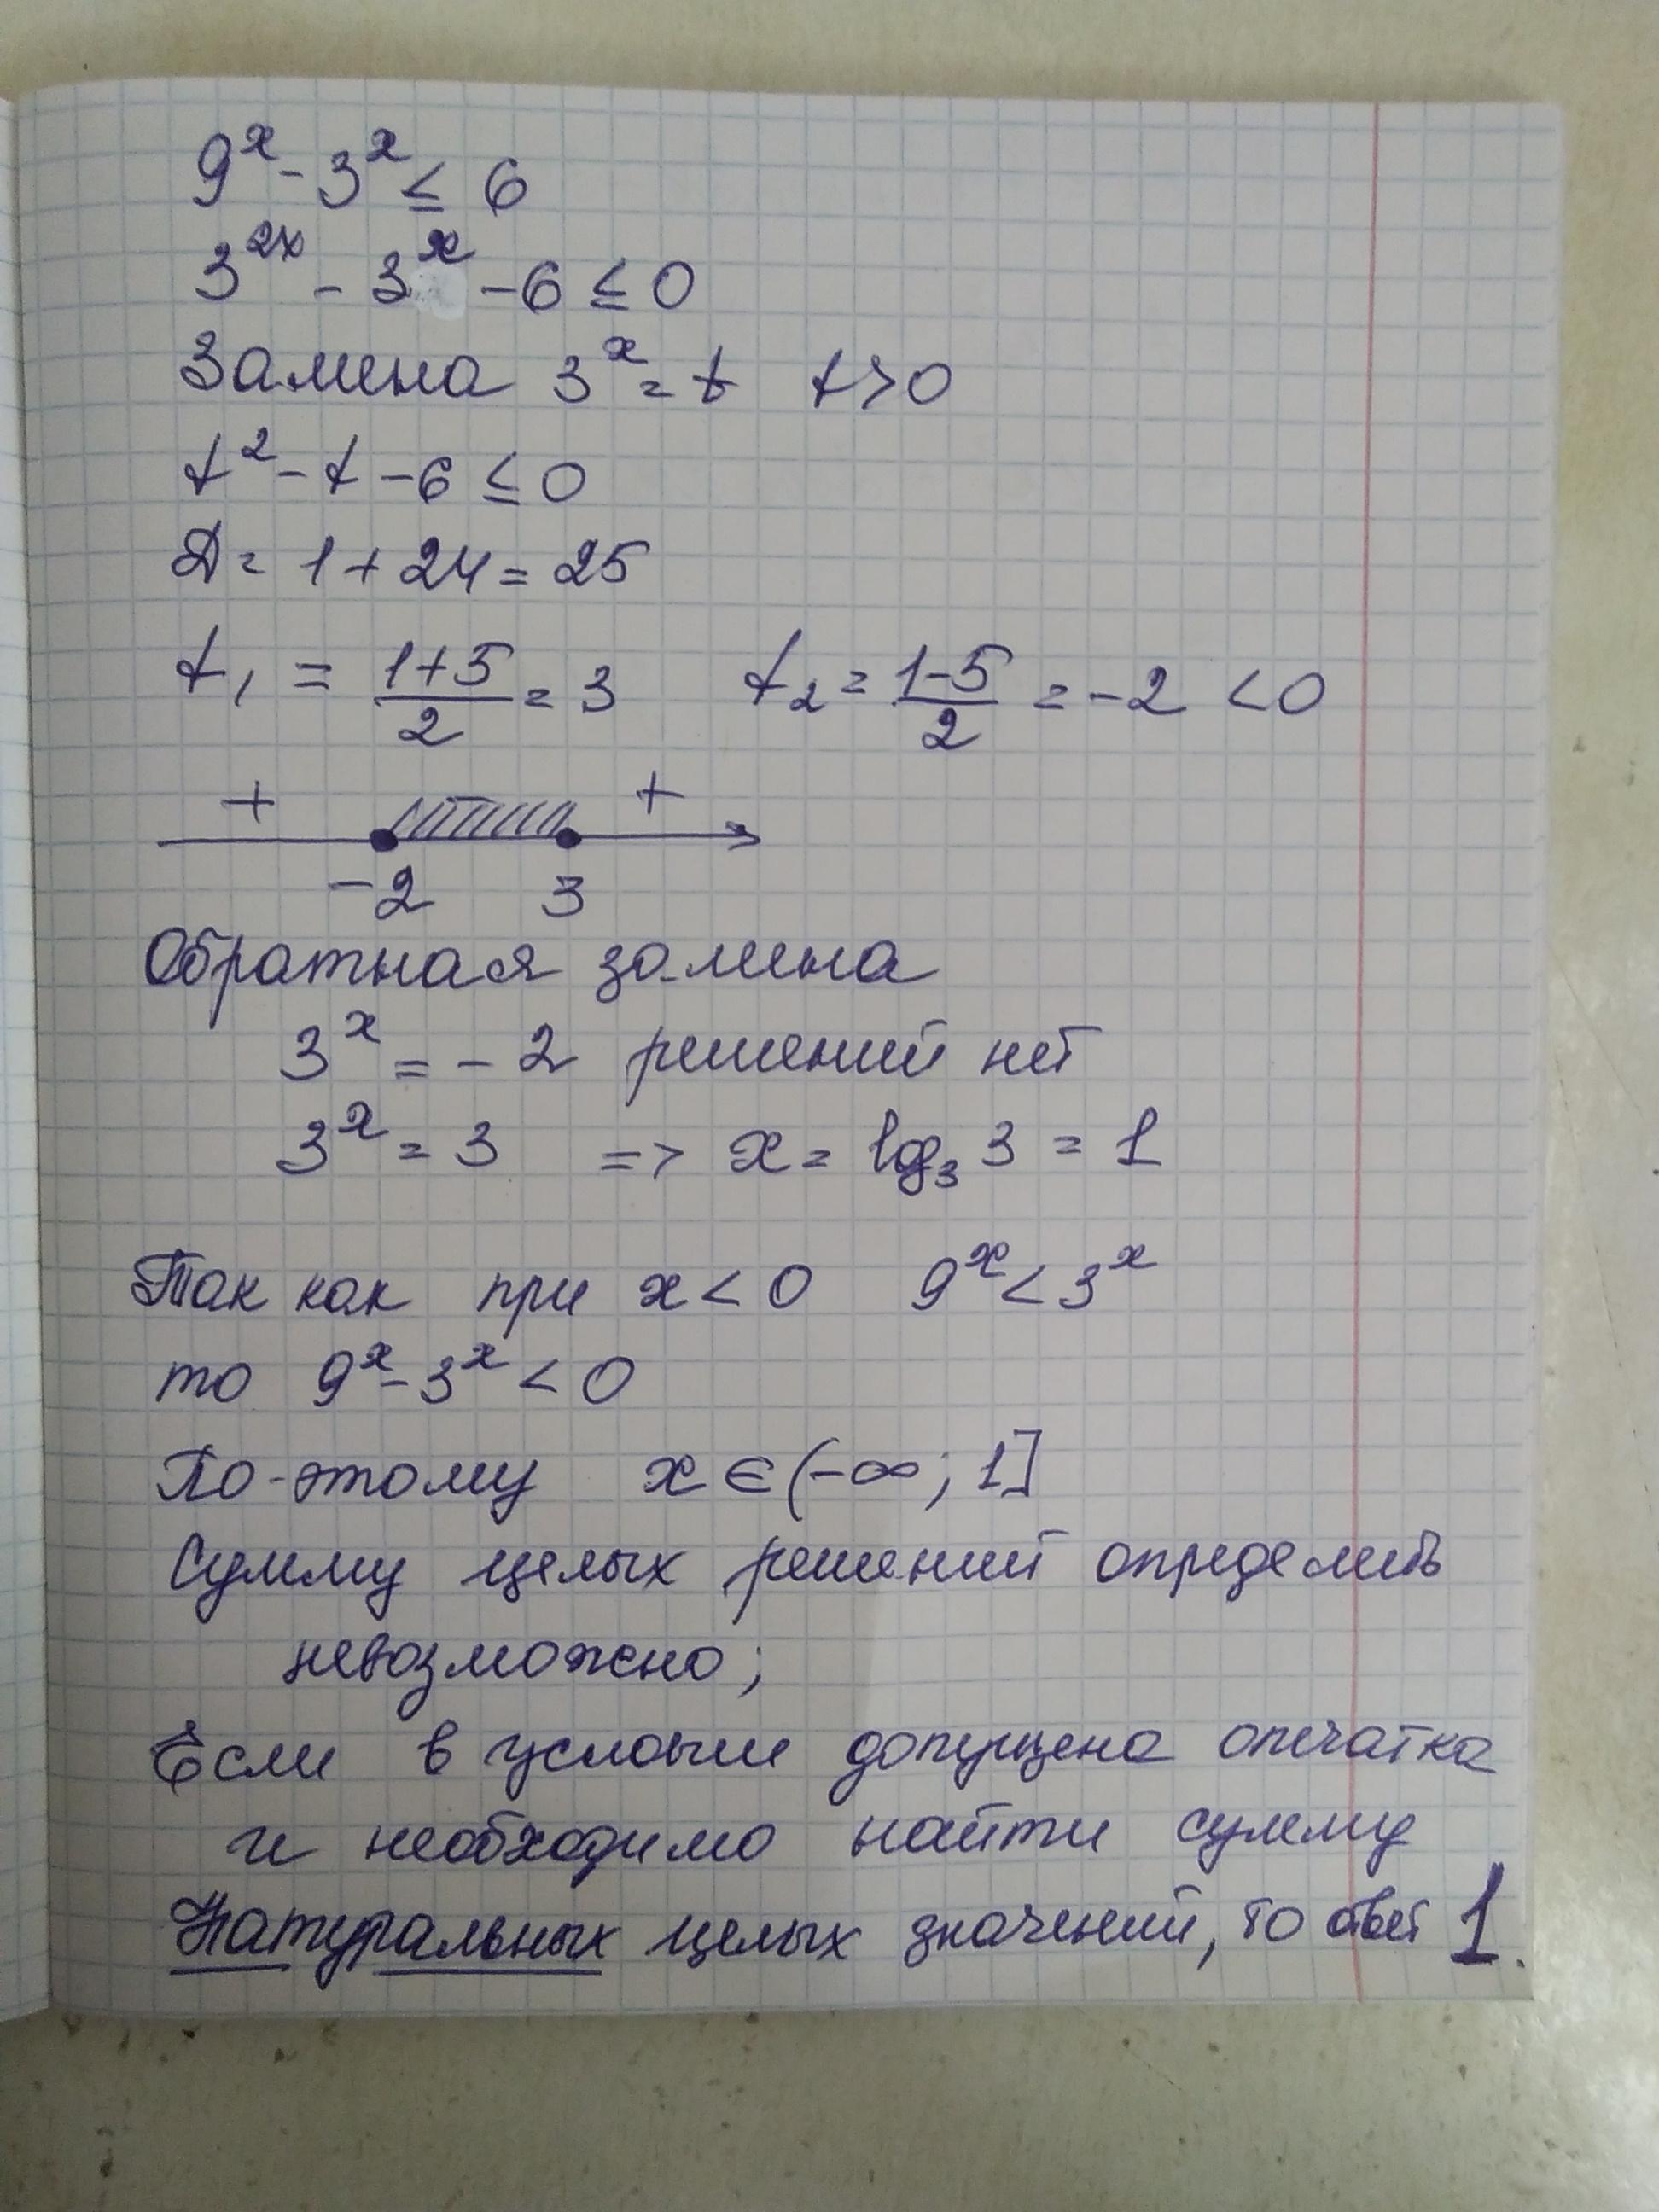 9^x - 3^x ≤ 6
3^{2x} - 3^x - 6 ≤ 0
Замена 3^x = t t > 0
t^2 - t - 6 ≤ 0
Д = 1 + 24 = 25
t_1 = \frac{1+5}{2} = 3 t_2 = \frac{1-5}{2} = -2 < 0
+ +
-2 3
Обратная замена
3^x = -2 решений нет
3^x = 3 => x = log_3 3 = 1
Так как при x < 0 9^x < 3^x
то 9^x - 3^x < 0
По-этому x ∈ (-∞; 1]
Сумму целых решений определить
невозможно;
Если в условии допущена опечатка
и необходимо найти сумму
Натуральных целых значений, то ответ 1.